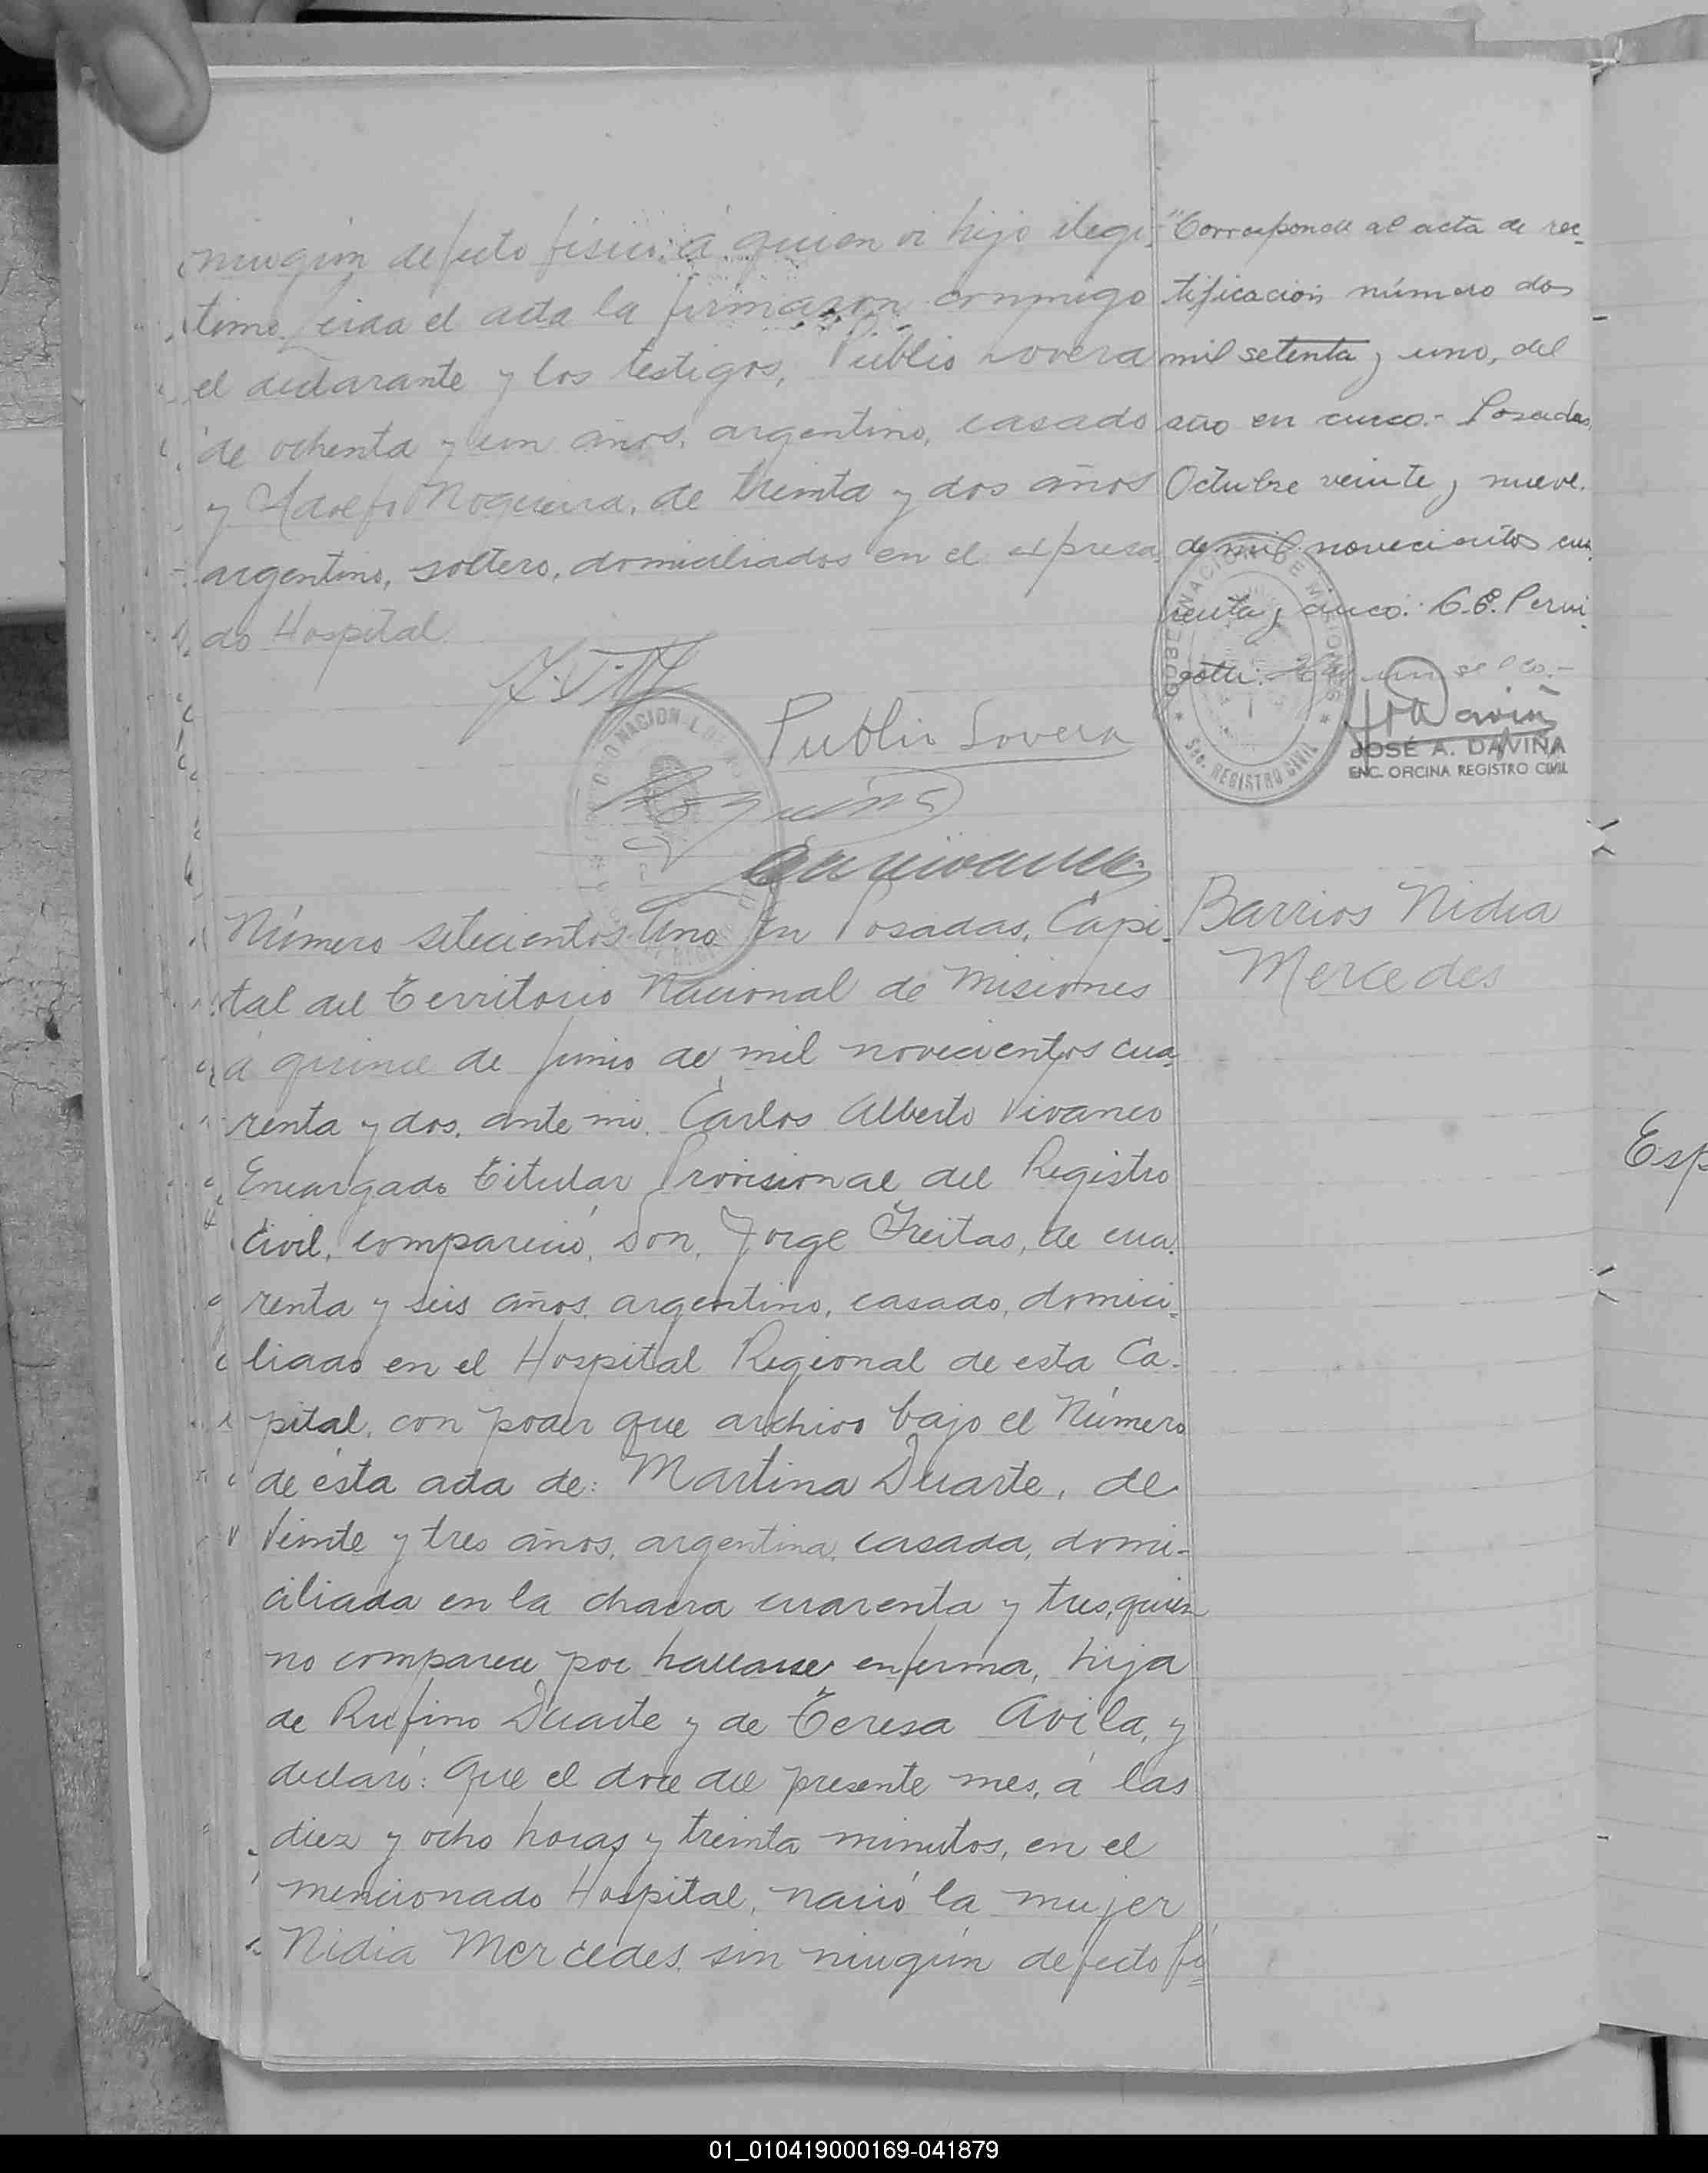 ningún defecto físico: á quien vi hijo ilegi-
timo. Leida el acta la firmaron conmigo
el declarante y los testigos, Publio Lovera
de ochenta y un años, argentino, casado
y Adolfo Nogueira, de treinta y dos años
argentino, soltero, domiciliados en el expresa-
do Hospital.
Publio Lovera
"Corresponde al acta de rec-
tificación número dos
mil setenta y uno, del
año en curso.- Posadas,
Octubre veinte y nueve.
de mil novecientos cua-
renta y cinco.
Hay un sello.-
GOBERNACION DE MISIONES
Sec. REGISTRO CIVIL
JOSÉ A. DAVIÑA
ENC. OFICINA REGISTRO CIVIL
Número setecientos Uno. En Posadas, Capi-
tal del Territorio Nacional de Misiones
á quince de Junio de mil novecientos cua-
renta y dos, ante mi. Carlos Alberto Vivanco
Encargado Titular Provisional del Registro
Civil, compareció, Don, Jorge Freitas, de cua-
renta y seis años, argentino, casado, domici-
liado en el Hospital Regional de esta Ca-
pital, con poder que archivo bajo el Número
de ésta acta de: Martina Duarte, de
Veinte y tres años, argentina, casada, domi-
ciliada en la chacra cuarenta y tres, quien
no comparece por hallarse enferma, hija
de Rufino Duarte y de Teresa Avila, y
declaró: Que el doce del presente mes, á las
diez y ocho horas y treinta minutos, en el
mencionado Hospital, nació la mujer
Nidia Mercedes sin ningún defecto fí-
Barrios Nidia
Mercedes
Esp
01_010419000169-041879